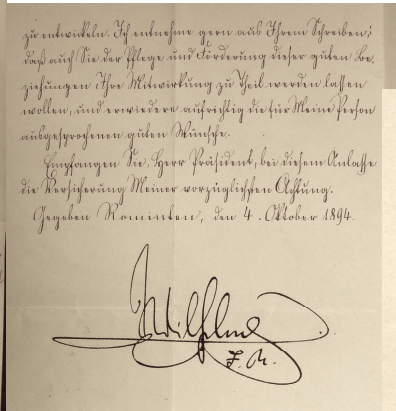 zu entwickeln. Ich entnehme gern aus Ihrem Schreiben,
daß auch Sie der Pflege und Förderung dieser guten Be-
ziehungen Ihre Mitwirkung zu Theil werden lassen
wollen, und erwiedere aufrichtig die für Meine Person
ausgesprochenen guten Wünsche.
Empfangen Sie, Herr Präsident, bei diesem Anlasse
die Versicherung Meiner vorzüglichsten Achtung.
Gegeben Rominten, den 4. Oktober 1894.
Wilhelm
I. R.